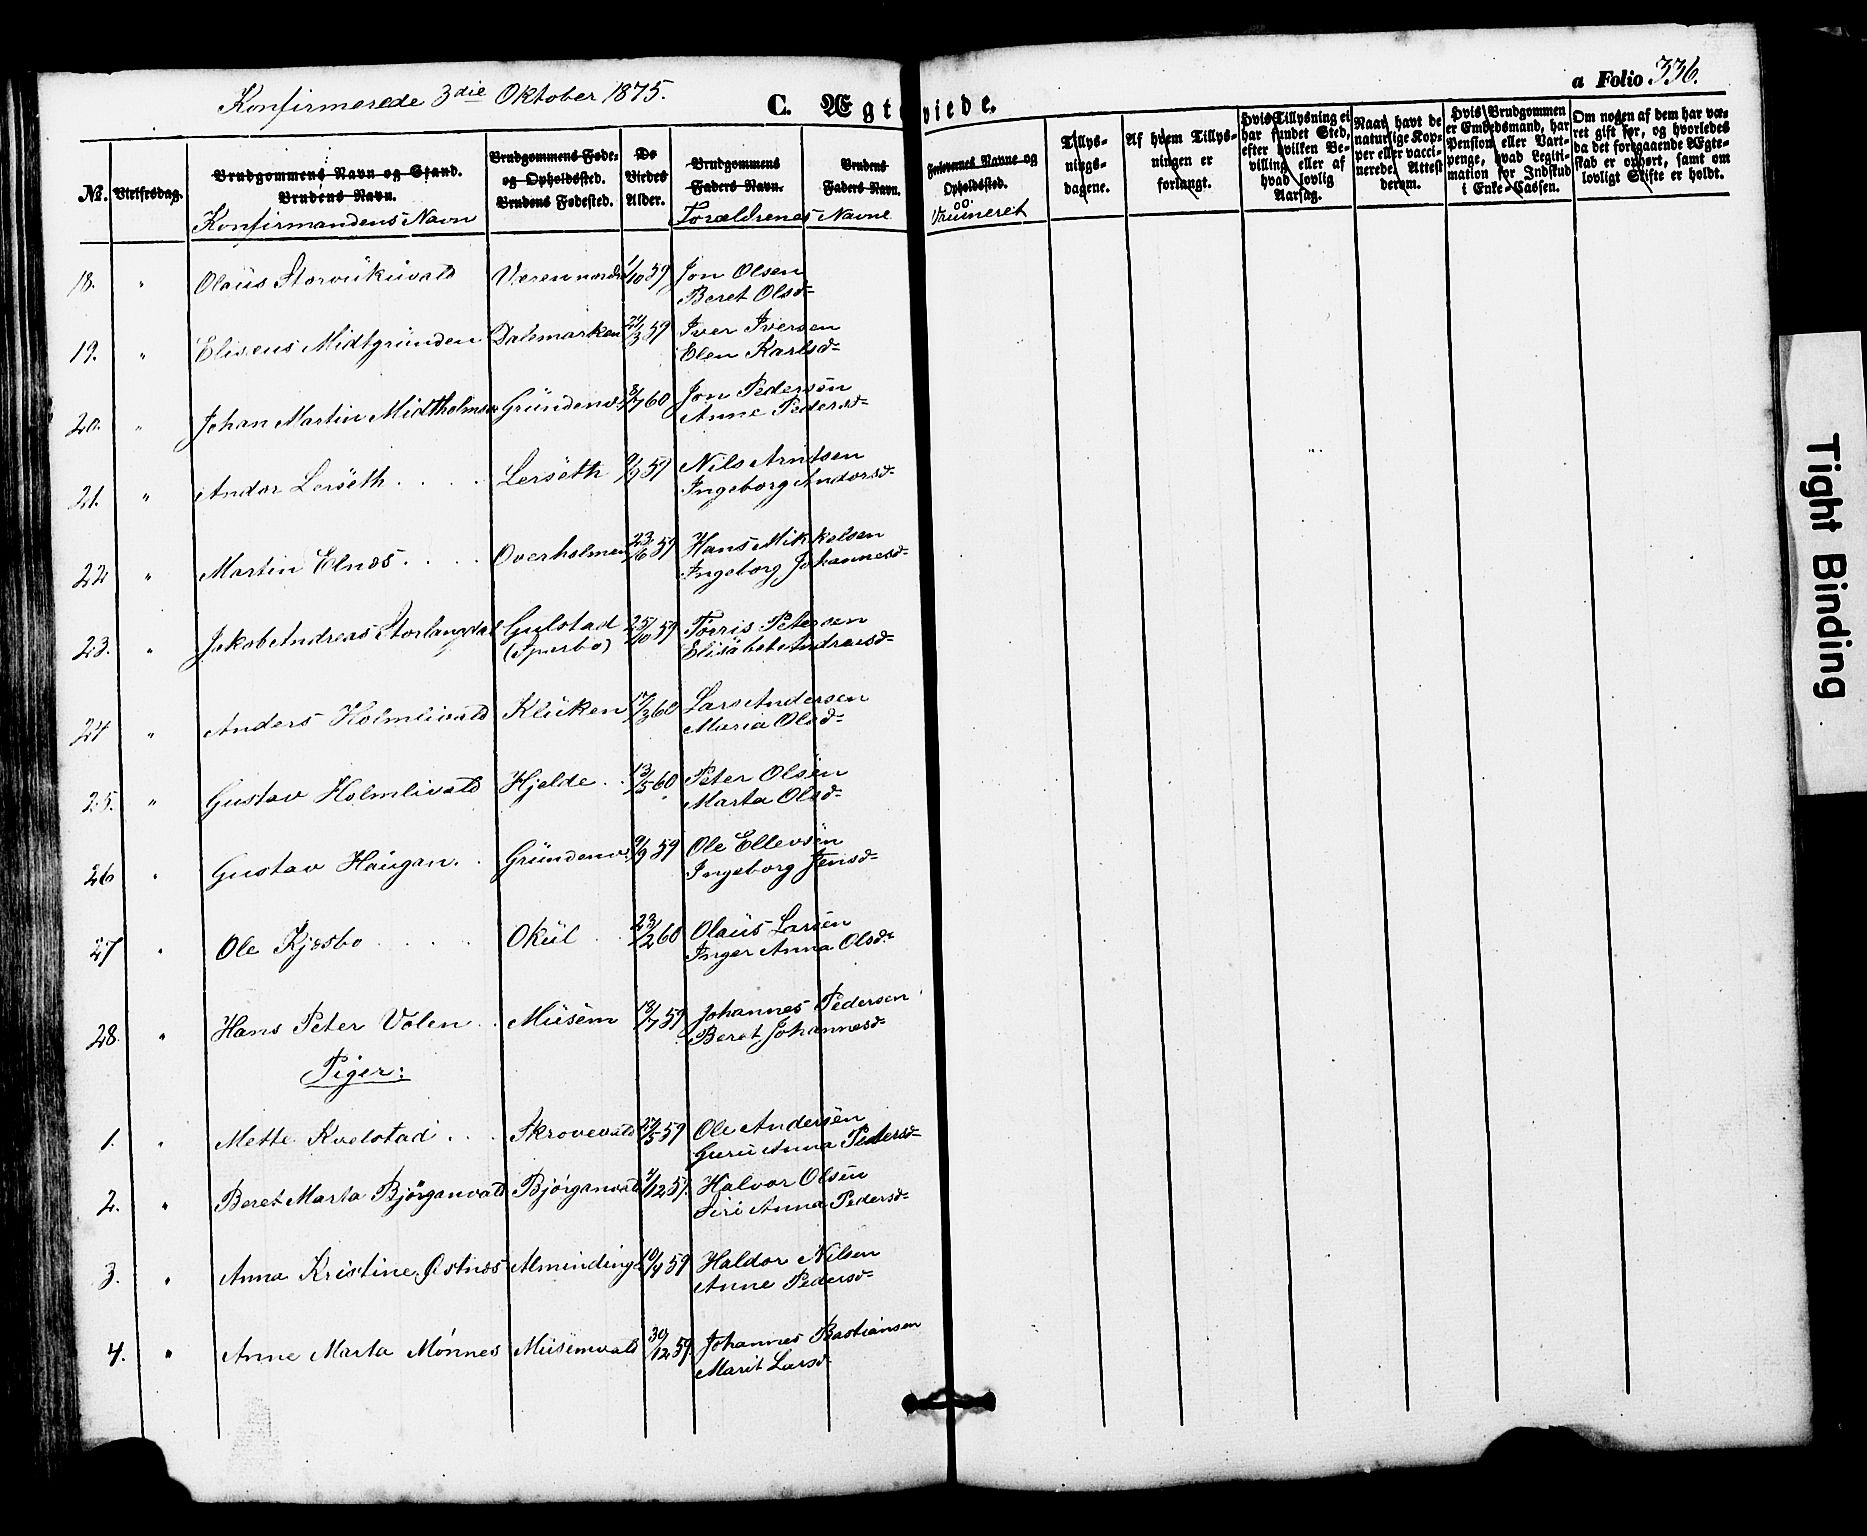 Konfirmerede 3die Oktober 1875.
C. Ægte
viede.
a Folio 336.
No.
Vielsesdag.
Brudgommens Navn og Stand.
Brudens Navn.
Konfirmandens Navn
Brudgommens Føde-
og Opholdssted.
Brudens Fødested.
De
Viedes
Alder.
Brudgommens
Faders Navn.
Brudens
Faders Navn.
Forældrenes Navne
Forlovernes Navne og
Opholdssted.
Tillys-
nings-
dagene.
Af hvem Tillys-
ningen er
forlangt.
Hvis Tillysning ei
har fundet Sted,
efter hvilken Be-
villing eller af
hvad lovlig
Aarsag.
Naar havt de
naturlige Kop-
per eller vacci-
nerede. Attest
derom.
Hvis Brudgommen
er Embedsmand, har
Pension eller Vart-
penge, hvad Legiti-
mation for Indskud
i Enke-Cassen.
Om nogen af dem har væ-
ret gift før, og hvorledes
da det foregaaende Ægte-
skab er ophørt, samt om
lovligt Skifte er holdt.
18. " Olaus Storvukuvald Væren nordre 1/10 59 Jon Olsen
Beret Olsd=
19. " Eliseus Midtgrunden Dalsmarken 21/3 59 Iver Iversen
Elen Karlsd=
20. " Johan Martin Midtholmen Grundenv. 8/7 60 Jon Pedersen
Anne Pedersd=
21. " Andor Lerseth . . . . Lerseth 9/9 59 Nils Arntsen
Ingeborg Andorsd=
22 " Martin Elnes . . . . Overholmen 23/6 59 Hans Mikkelsen
Ingeborg Johannesd=
23. " Jakob Andreas Storlangdal Gulstad 25/10 59 Torris Petersen
(Sparbo) Elisabet Andreasd=
24 " Anders Holmlivald Kluken 17/3 60 Lars Andersen
Maria Olsd=
25. " Gustav Holmlivald Hjelde . . 13/5 60 Peter Olsen
Marta Olsd=
26 " Gustav Haugan . . Grundenv. 9/9 59 Ole Ellevsen
Ingeborg Jensd=
27 " Ole Kjesbo . . . . . Okul . 23/2 60 Olaus Larsen
Inger Anna Olsd=
28. " Hans Peter Volen . . Musem 18/7 59 Johannes Pedersen
Beret Johannesd=
Piger:
1. " Mette Kvelstad . . . Skrovevald 27/5 59 Ole Andersen
Guru Anna Pedersd=
2. " Beret Marta Bjørganvald Bjørganvald 1/12 59. Halvor Olsen
Siri Anna Pedersd=
3. " Anna Kristine Østnes Alminding 10/4 59 Haldor Nilsen
Anne Pedersd=
4. " Anne Marta Mønnes Musemvald 30/12 59. Johannes Bastiansen
Marit Larsd=
Tight Binding